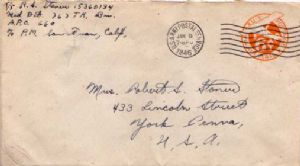 T/5 R. S. Stoner 15360134
Med Det. 767 T.K. Bn.
APO 660
c/o P.M. San Fran, Calif.
U.S. ARMY POSTAL SERVICE
JAN
1946
Mrs. Robert S. Stoner
433 Lincoln Street
York Penna,
U. S. A.